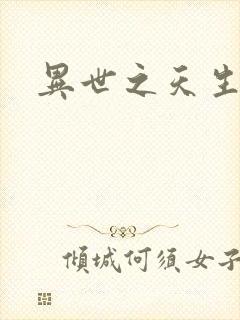 異世之天生
傾城何須女子